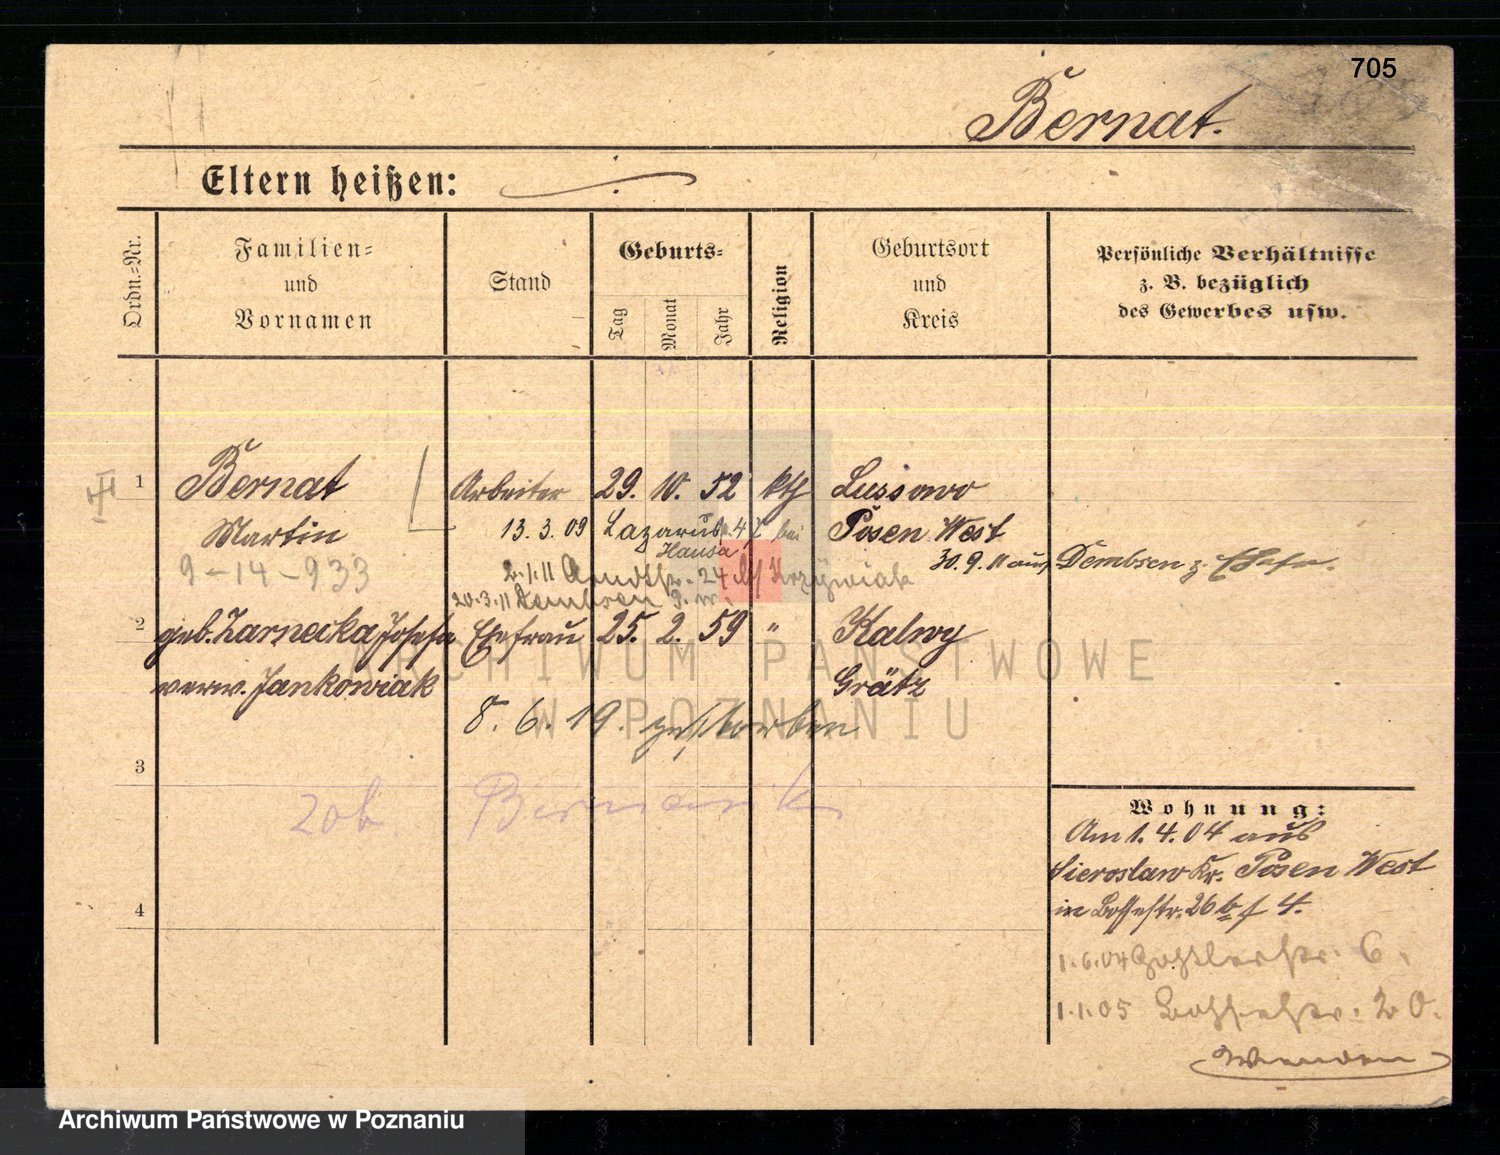 705
Bernat.
Eltern heißen:
Ordn.=Nr.
Familien=
und
Vornamen
Stand
Geburts=
Tag
Monat
Jahr
Religion
Geburtsort
und
Kreis
Persönliche Verhältnisse
z. B. bezüglich
des Gewerbes usw.
1 Bernat Arbeiter 29. 10. 52 kth Lussowo
Martin 13. 3. 09 Lazarus bei Posen West
Hausa
9-14-933 24 Krzywiak 30. 9. 11 auf Dembsen z.
20.3.11 Dembsen
2 geb. Zarnecka Josefa Ehefrau 25. 2. 59 " Kalwy
verw. Jankowiak Grätz
8. 6. 19. gestorben
3
Wohnung:
Am 1. 4. 04 aus
Sieroslaw Kr. Posen West
in 26 4.
4
1.6.04 6.
1.1.05 20.
Wenden
ARCHIWUM PAŃSTWOWE
W POZNANIU
Archiwum Państwowe w Poznaniu